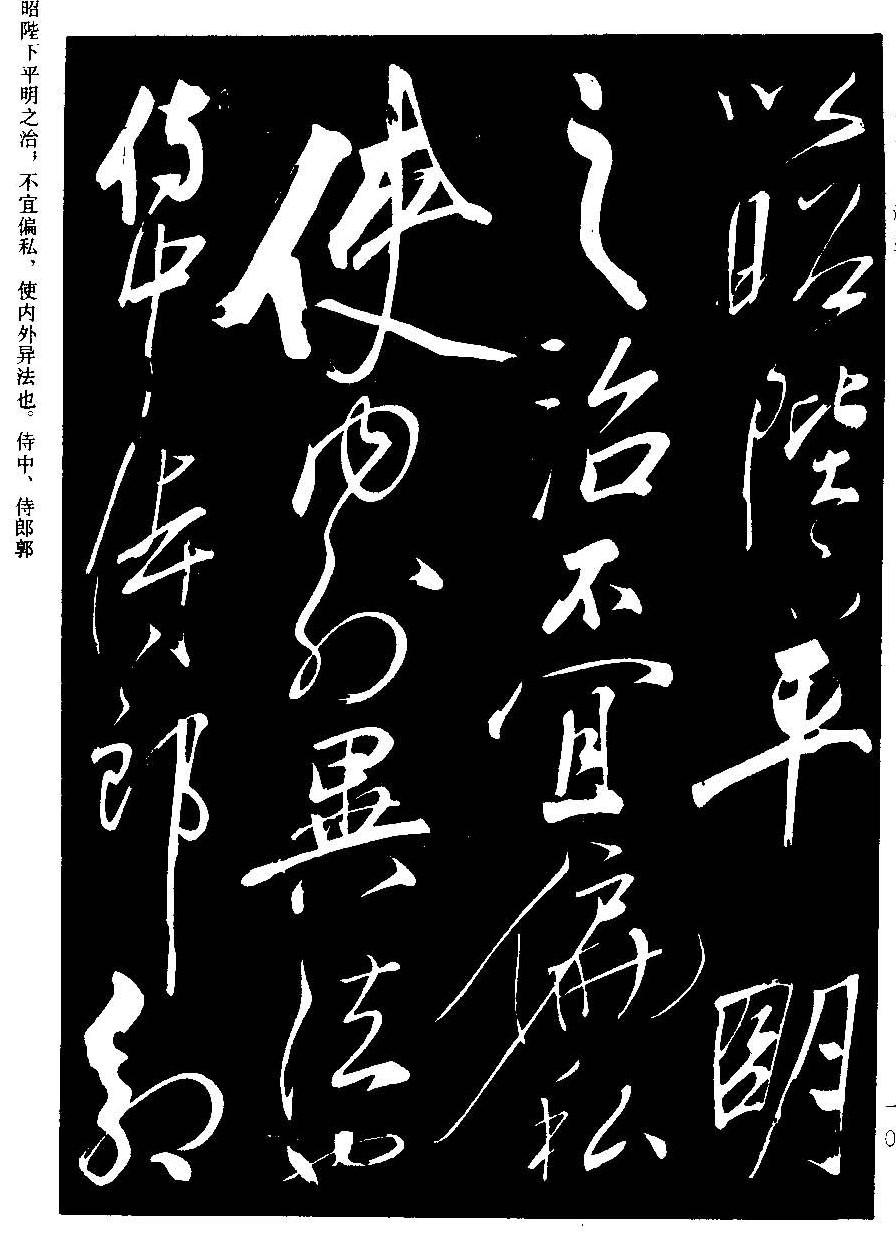 以昭陛下平明
之治不宜偏私
使内外異法也
侍中侍郎郭
昭陛下平明之治，不宜偏私，使内外异法也。侍中、侍郎郭
一0